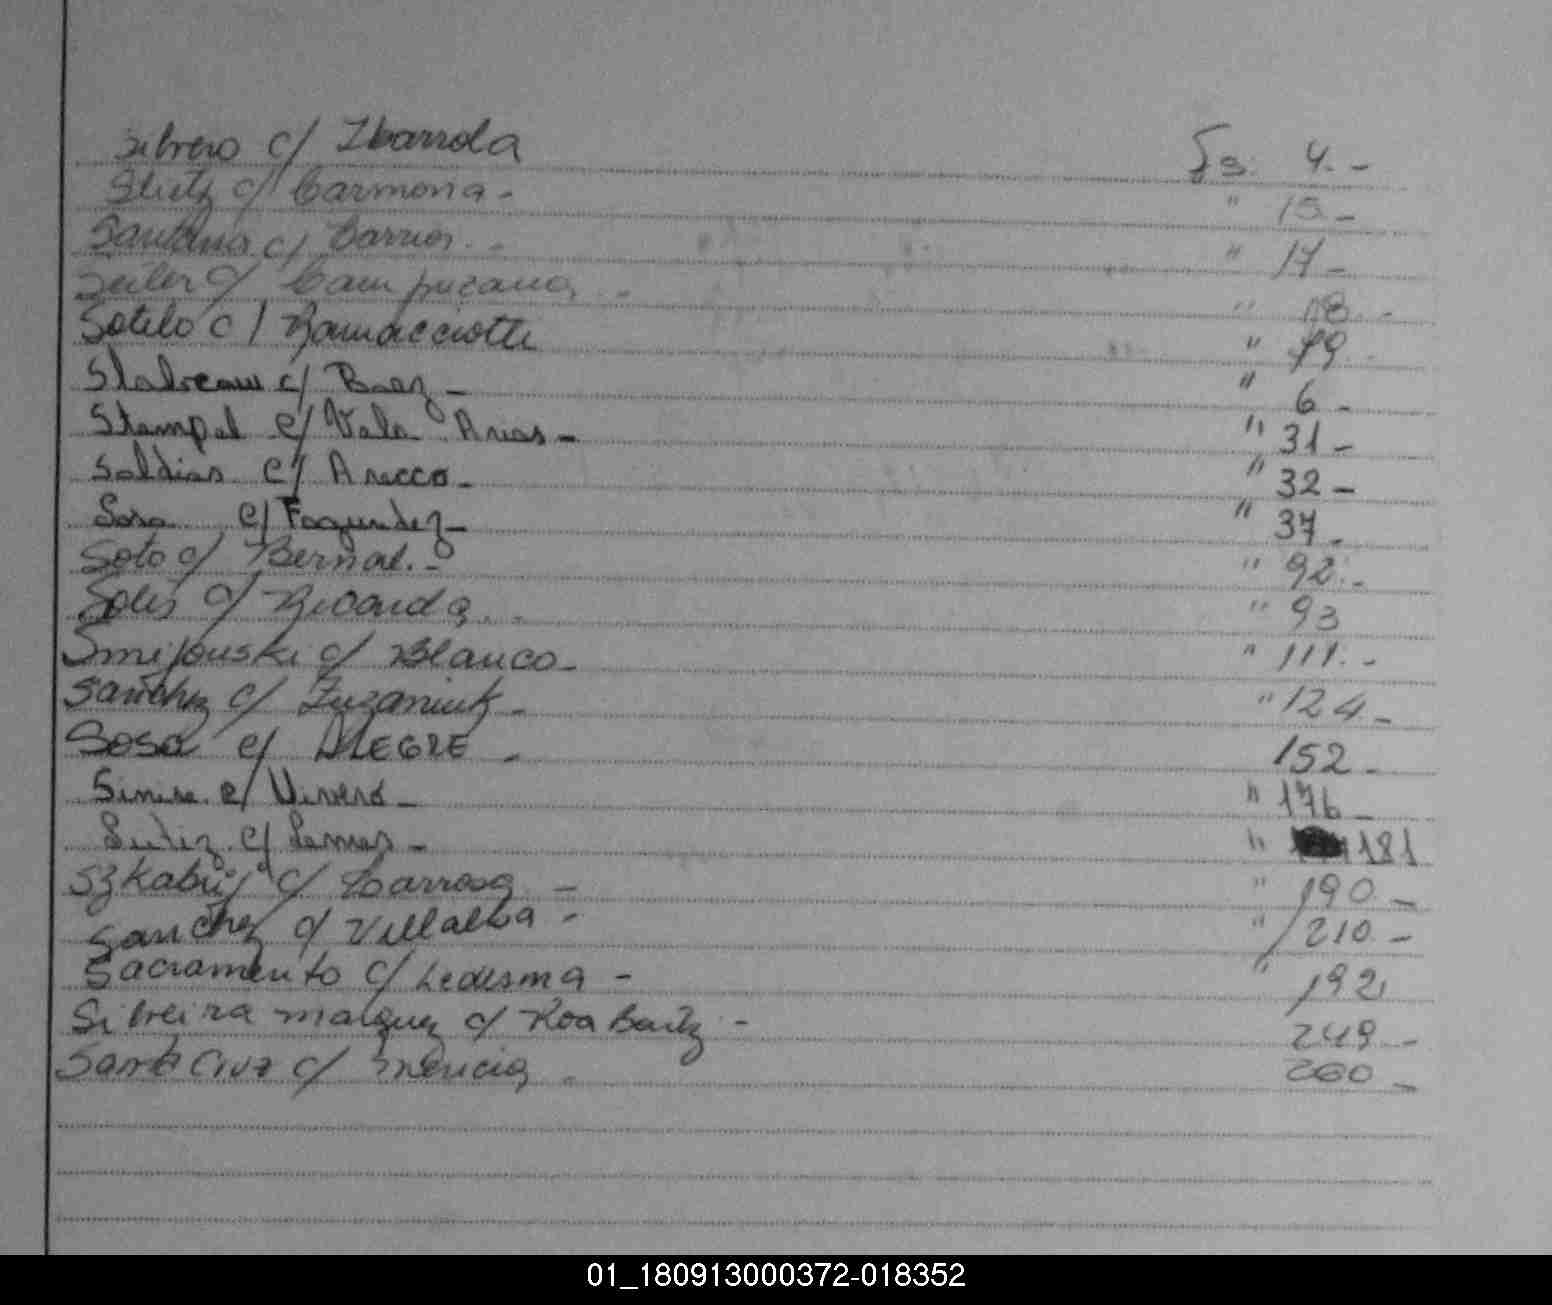 Silvero c/ Ibarrola Fs. 4.-
c/ Carmona - " 15 -
Santana c/ Barrios.- " 17 -
Seiler c/ Campuzano.- " 18.-
Sotelo c/ Ramacciotti " 79.-
c/ Baez - " 6 -
Stampel c/ Vala Arias - " 31 -
Saldias c/ Arecco - " 32 -
Sosa c/ Fagundez - " 37 -
Soto c/ Bernal.- " 92.-
Solis c/ Ricarda.- " 93
c/ Blanco - " 111.-
Sanchez c/ Zuzaniuk - " 124 -
Sosa c/ ALEGRE - 152 -
c/ Vivero - " 176 -
c/ Lemes - " 181
c/ Barrosa - " 190.-
Sanchez c/ Villalba - " 210.-
Sacramento c/ Ledesma - " 192
Silveira Marquez c/ Roa Baitz - 249.-
Santa Cruz c/ Mencia - 260 -
01_180913000372-018352